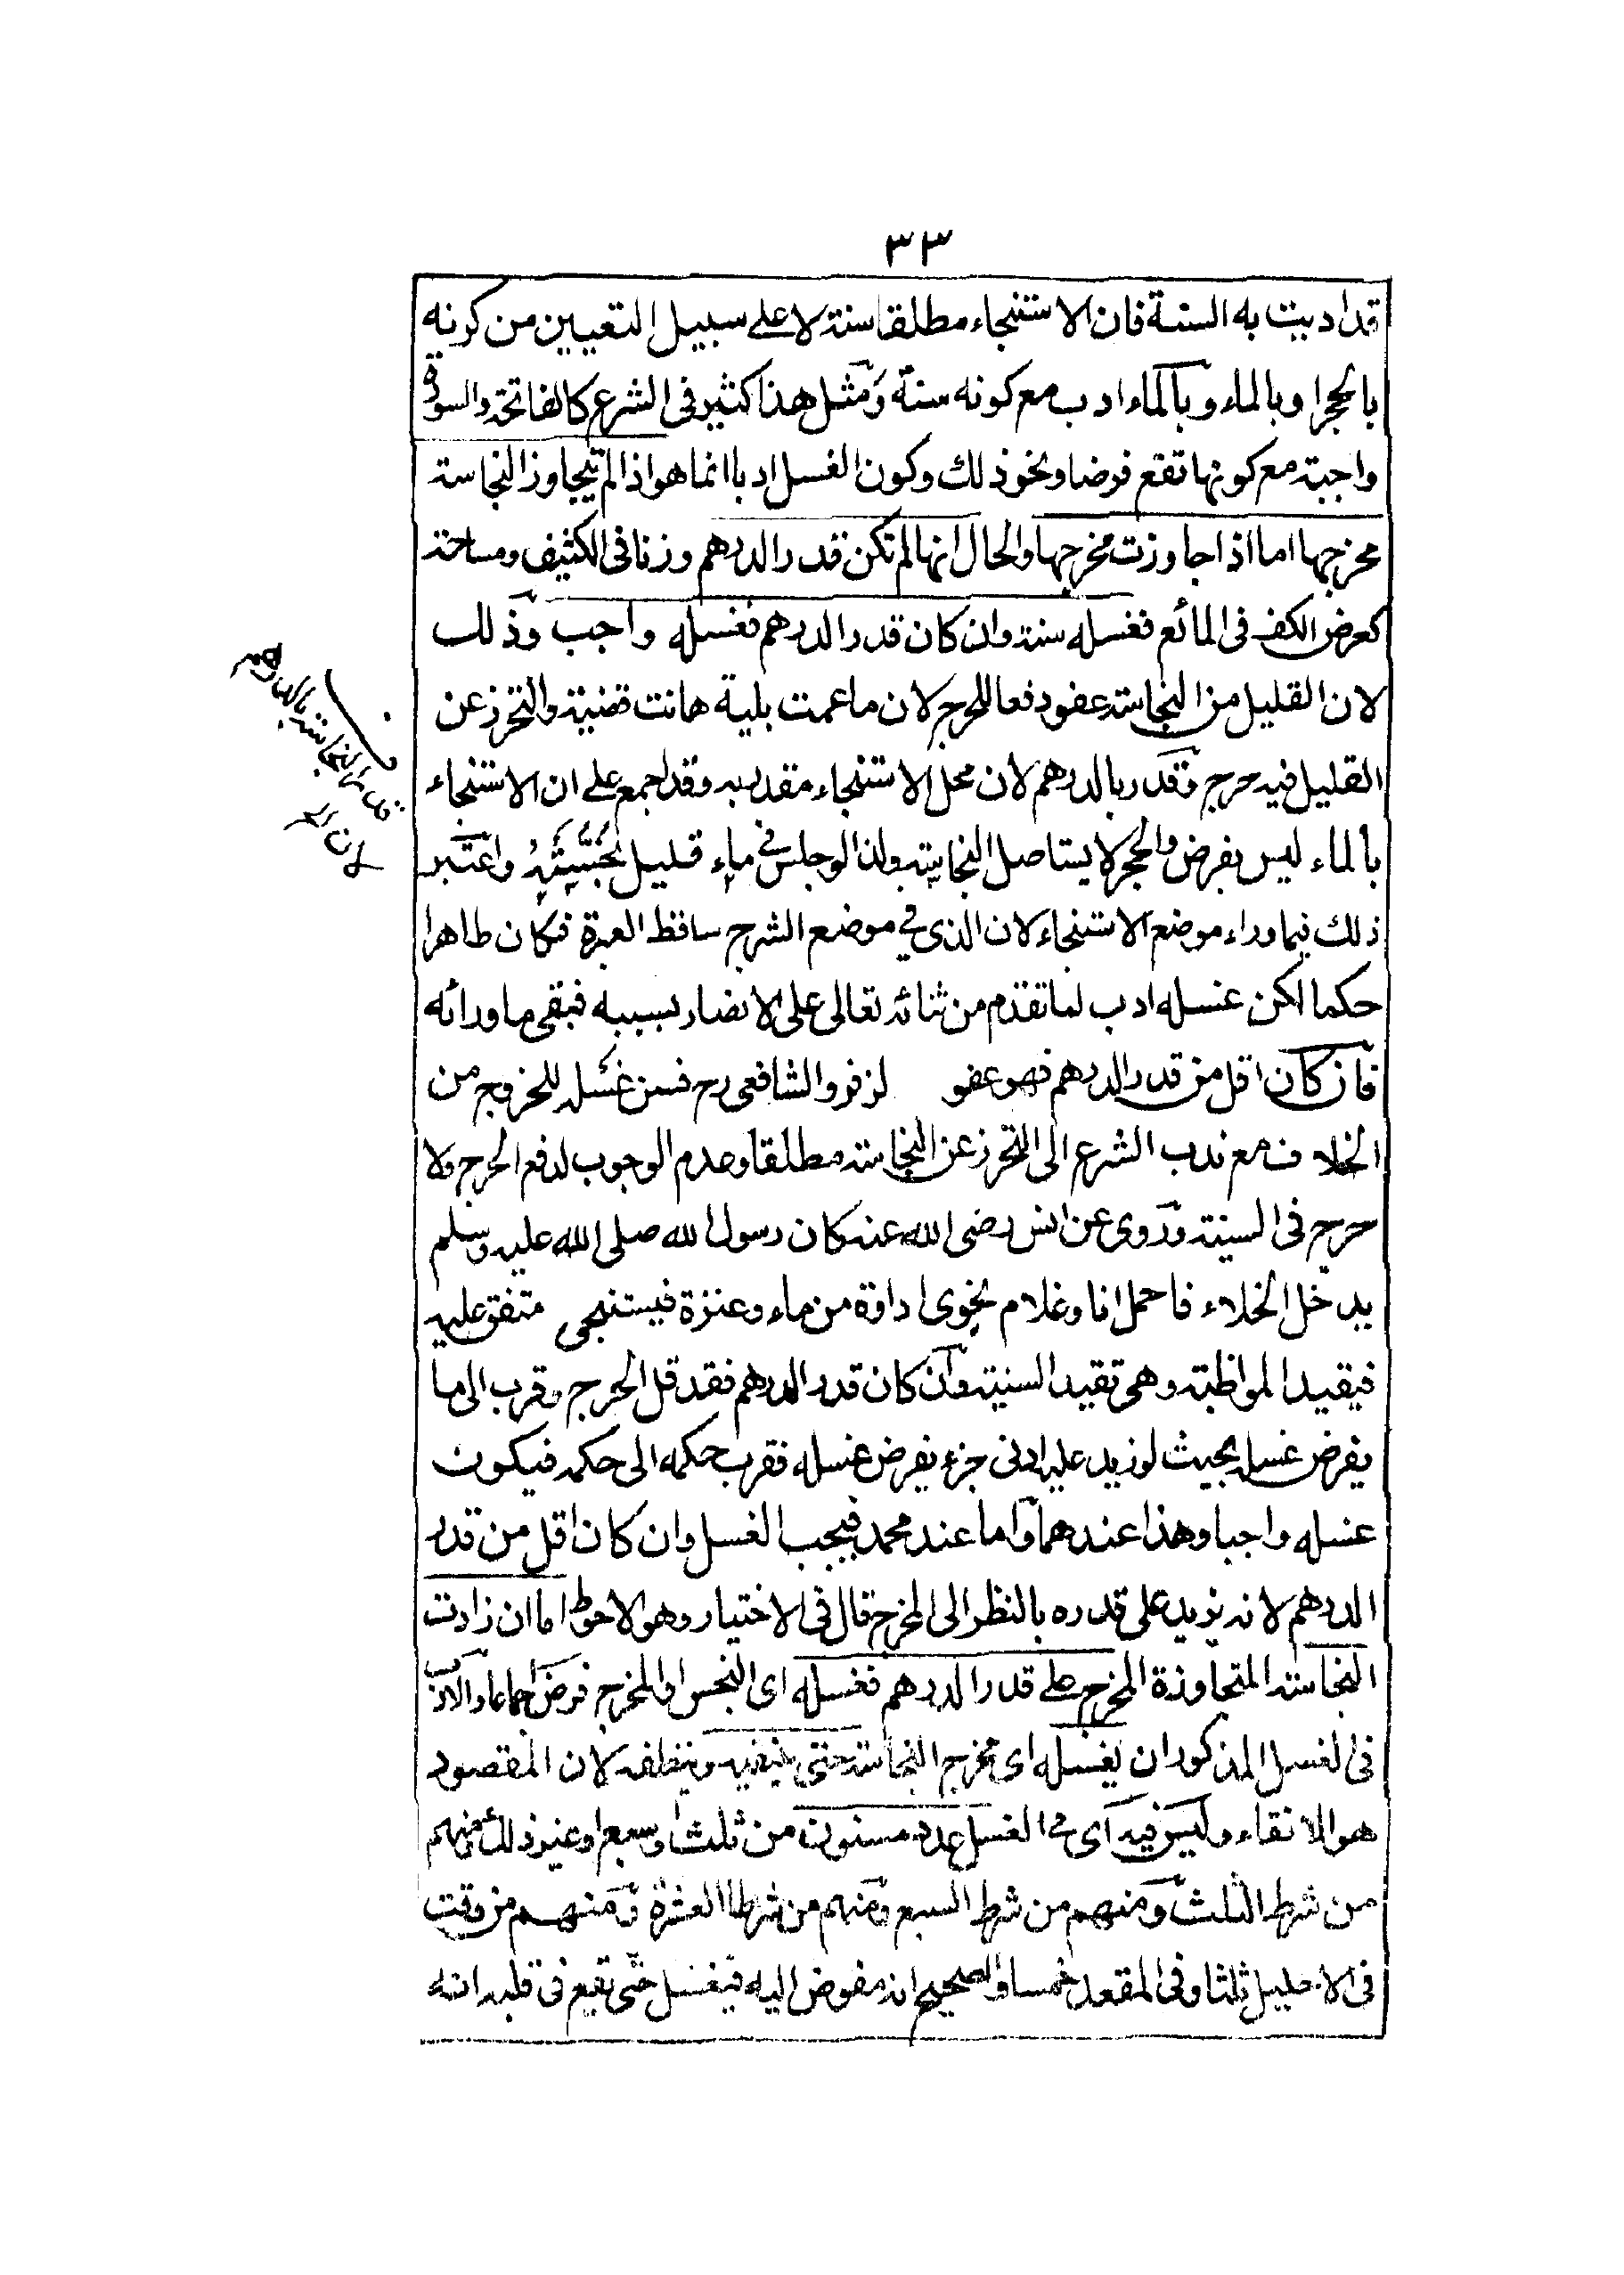 ٣٣
قد اديت به السنة فان الاستنجاء مطلقا سنة لا على سبيل التعيين من كونه
بالحجر او بالماء وبالماء ادب مع كونه سنة ومثل هذا كثير فى الشرع كالفاتحة والسورة
واجبة مع كونها تقع فرضا ونحو ذلك وكون الغسل ادبا انما هو اذا لم يتجاوز النجاسة
مخرجها اما اذا جاوزت مخرجها والحال انها لم تكن قدر الدرهم وزنا فى الكثيف ومساحة
كعرض الكف فى المائع فغسله سنة وان كان قدر الدرهم فغسله واجب وذلك
لان القليل من النجاسة عفو دفعا للحرج لان ما عمت بلية هانت قضيته والتحرز عن
القليل فيه حرج وقدر بالدرهم لان محل الاستنجاء مقدر به وقد اجمع على ان الاستنجاء
بالماء ليس بفرض والحجر لا يستاصل النجاسة ولذا لو جلس فى ماء قليل نجسته واعتبر
ذلك فيما وراء موضع الاستنجاء لان الذى فى موضع الشرج ساقط العبرة فكان طاهرا
حكما لكن غسله ادب لما تقدم من ثنائه تعالى على الانصار بسببه فبقى ما ورائه
فان كان اقل من قدر الدرهم فهو عفو لزفر والشافعى رح فسن غسله للخروج من
الخلاف مع ندب الشرع الى التحرز عن النجاسة مطلقا وعدم الوجوب لدفع الحرج ولا
حرج فى السنية وروى عن انس رضى الله عنه كان رسول الله صلى الله عليه وسلم
يدخل الخلاء فاحمل انا وغلام نحوى اداوة من ماء وعنزة فيستنجى متفق عليه
فيقيد المواظبة وهى تقيد السنية وان كان قدر الدرهم فقد قل الحرج وقرب الى ما
يفرض غسله بحيث لو زيد عليه ادنى جزء يفرض غسله فقرب حكمه الى حكمه فيكون
غسله واجبا وهذا عندهما واما عند محمد فيجب الغسل وان كان اقل من قدر
الدرهم لانه يزيد على قدره بالنظر الى المخرج قال فى الاختيار وهو الاحوط اما ان زادت
النجاسة المتجاوزة المخرج على قدر الدرهم فغسله اى النجس او المخرج فرض اجماعا والادب
فى الغسل المذكور ان يغسله اى مخرج النجاسة حتى ينقيه وينظفه لان المقصود
هو الانقاء وليس فيه اى فى الغسل عدد مسنون من ثلث او سبع او غير ذلك فمنهم
من شرط الثلث ومنهم من شرط السبع ومنهم من شرط العشرة ومنهم من وقت
فى الاحليل ثلثا وفى المقعد خمسا والصحيح انه مفوض اليه فيغسل حتى يقع فى قلبه انه
النجاسة بالدرهم